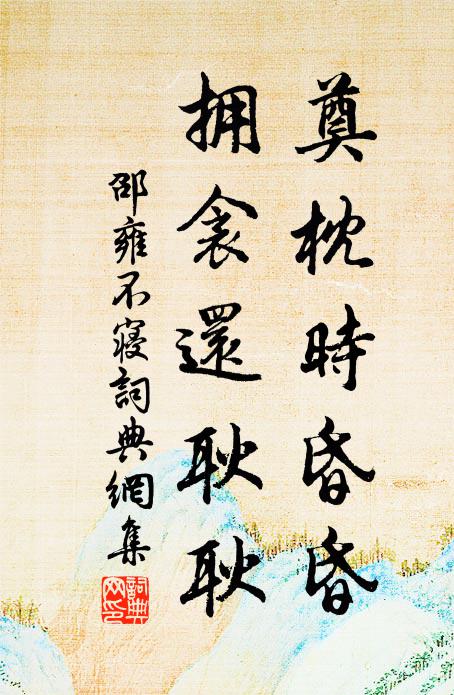 奠枕時昏昏
拥衾還耿耿
邵雍不寝詞典網集
詞典网印